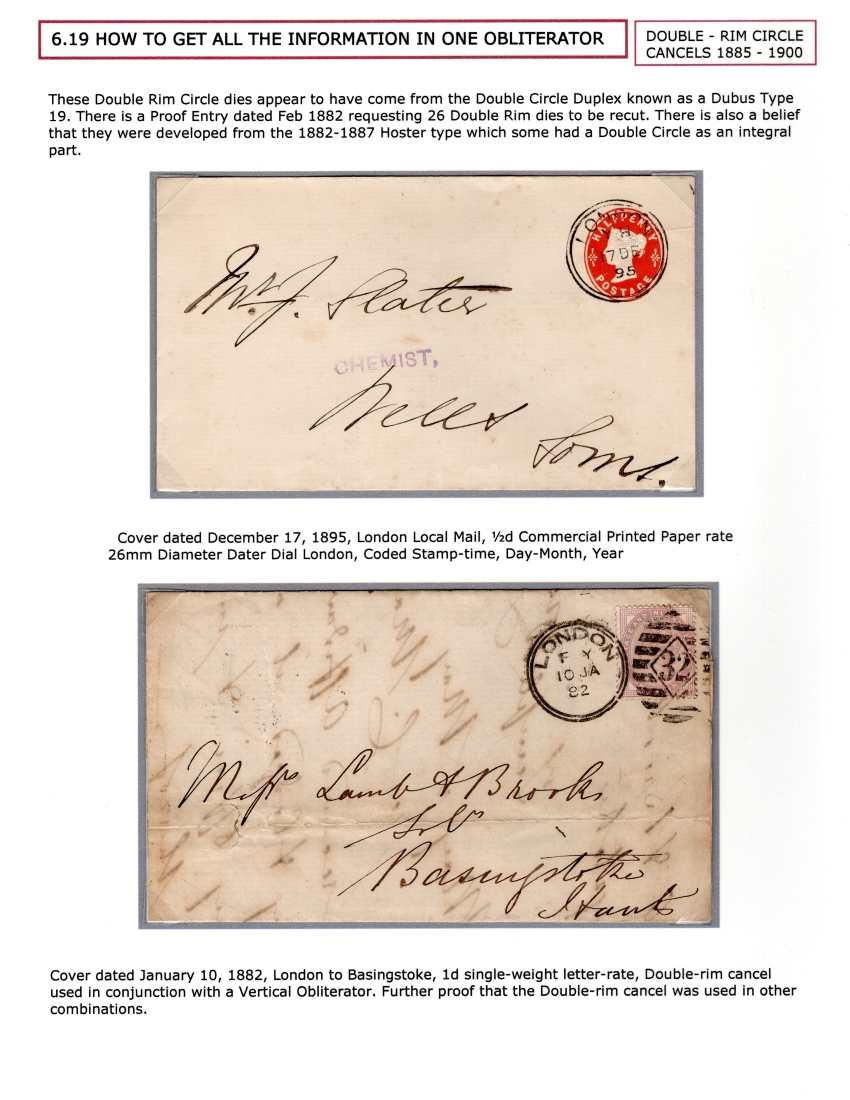 6.19 HOW TO GET ALL THE INFORMATION IN ONE OBLITERATOR
DOUBLE - RIM CIRCLE
CANCELS 1885 - 1900
These Double Rim Circle dies appear to have come from the Double Circle Duplex known as a Dubus Type
19. There is a Proof Entry dated Feb 1882 requesting 26 Double Rim dies to be recut. There is also a belief
that they were developed from the 1882-1887 Hoster type which some had a Double Circle as an integral
part.
LONDON
HALFPENNY
17 DE
95
POSTAGE
Mr. J. Slater
CHEMIST,
Wells
Soms.
Cover dated December 17, 1895, London Local Mail, ½d Commercial Printed Paper rate
26mm Diameter Dater Dial London, Coded Stamp-time, Day-Month, Year
LONDON
F Y
10 JA
82
32
Messrs Lamb & Brooks
Solrs
Basingstoke
Hants
Cover dated January 10, 1882, London to Basingstoke, 1d single-weight letter-rate, Double-rim cancel
used in conjunction with a Vertical Obliterator. Further proof that the Double-rim cancel was used in other
combinations.